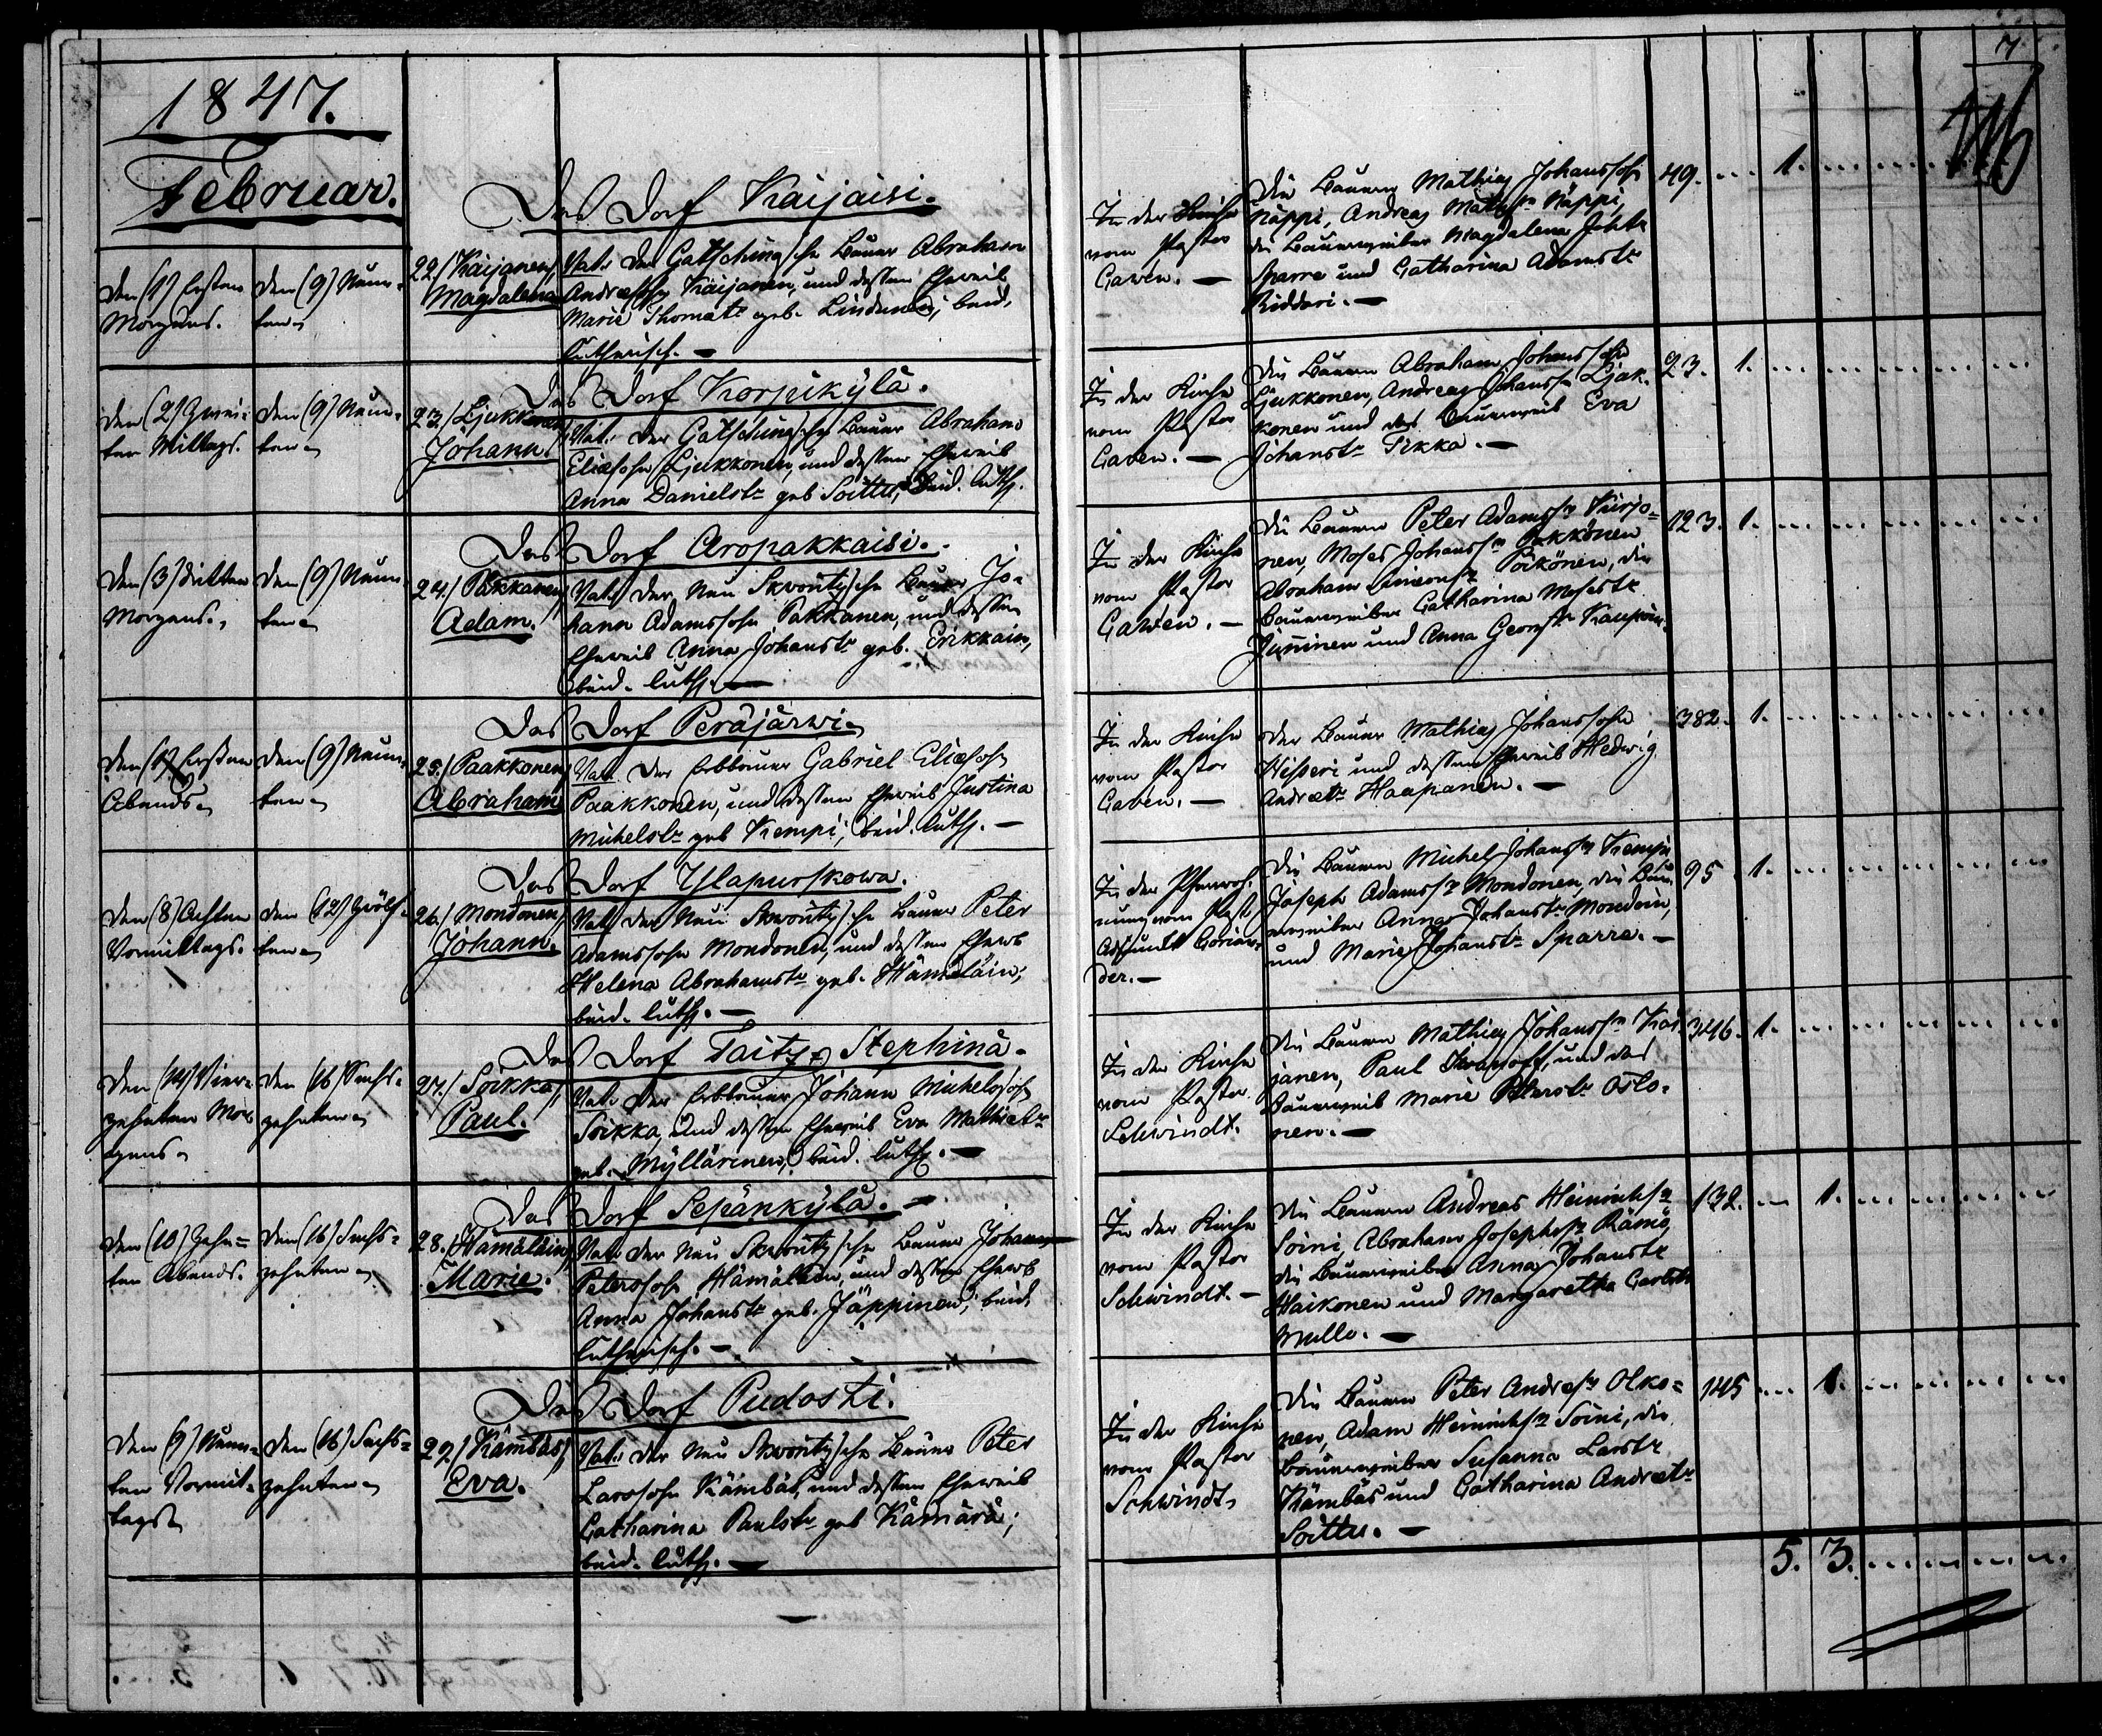 7
1847.
Februar.
Das Dorf Kaijaisi.
Den (1) Ersten
Morgens.
Den (9) Neun-
ten
22./ Kaijanen,
Magdalena
Vat. Der Gatschinasche Bauer Abraham
Andreassohn Kaijanen, und dessen Eheweib
Marie Thomast. geb. Lindunen; beid.
lutherisch. —
In der Kirche
vom Pastor
Caven. —
Die Bauern Mathias Johanssohn
Näppi, Andreas Mathssn Näppi,
die Bauerweiber Magdalena
Sparre und Catharina Adamstr
Riddari. —
49. 1.
Das Dorf Korpikylä.
Den (2) Zwei-
ten Mittags.
Den (9) Neun-
ten
23./ Ljukkonen
Johann
Vat. Der Gatschinasche Bauer Abraham
Eliasohn Ljukkonen, und dessen Eheweib
Anna Danielstr geb. Soittu, beid. luth.
In der Kirche
vom Pastor
Caven. —
Die Bauern Abraham Johanssohn
Ljukkonen, Andreas Johanssn Ljuk-
konen und das Bauerweib Eva
Johanstr Tikka. —
23. 1.
Das Dorf Aropakkaisi.
Den (3) Dritten
Morgens.
Den (9) Neun-
ten
24./ Pakkanen,
Adam.
Vat. Der Neu Skworitzsche Bauer Jo-
hann Adamssohn Pakkanen, und dessen
Eheweib Anna Johanstr geb. Erikkain,
beid. luth. —
In der Kirche
vom Pastor
Caven. —
Die Bauern Peter Adamssn Kurjo-
nen, Moses Johanssn Pakkonen
Abraham Simonssn Poikönen, die
Bauerweiber Catharina Mosestr
Junninen und Anna Georgstr
123. 1.
Das Dorf Peräjärwi
Den (1) Ersten
Abends
Den (9) Neun-
ten
25./ Paakkonen
Abraham
Vat. Der Erbbauer Gabriel Eliassohn
Paakkonen, und dessen Eheweib Justina
Michelstr geb. Kempi; beid. luth. —
In der Kirche
vom Pastor
Caven. —
Der Bauer Mathias Johanssohn
Hisseri und dessen Eheweib Hedwig
Andreastr Haapanen. —
382. 1.
Das Dorf Ylapurskowa.
Den (8) Achten
Vormittags.
Den (12) Zwölf-
ten
26./ Mondonen,
Johann.
Vat. Der Neu Skworitzsche Bauer Peter
Adamssohn Mondonen, und dessen Ehewb
Helena Abrahamstr geb. Hämäläin;
beid. luth. —
In der Pfarrwoh-
nung vom Past.
Adjunkt Corian-
der. —
Die Bauern Michel Johanssn Kempi
Joseph Adamssn Mondonen, die Bau-
erweiber Anna Johanstr Mondoin,
und Marie Johanstr Sparre. —
95 1.
Das Dorf Taitz Stephina.
Den (14) Vier-
zehnten Mor-
gens
Den (16) Sechs-
zehnten
27./ Soikka,
Paul.
Vat. Der Erbbauer Johann Michelssohn
Soikka, und dessen Eheweib Eva Mathiastr
geb. Myllärinen, beid. luth. —
In der Kirche
vom Pastor
Schwindt.
Die Bauern Mathias Johanssn Kai-
janen, Paul Iwanoff, und das
Bauerweib Marie Peterstr Osto-
nen. —
346. 1.
Das Dorf Sepänkylä. —
Den (10) Zehn-
ten Abends.
Den (16) Sechs-
zehnten
28./ Hämäläin,
Marie.
Vat. Der Neu Skworitzsche Bauer Johann
Peterssohn Hämäläin, und dessen Ehewb
Anna Johanstr geb. Jäppinen; beid.
lutherisch. —
In der Kirche
vom Pastor
Schwindt. —
Die Bauern Andreas Heinrichssn
Soini, Abraham Josephssn Rämö,
die Bauerweiber Anna Johanstr
Haikonen und Margaretha Carlstr
Mullo. —
132. 1.
Das Dorf Pudosti.
Den (9) Neun-
ten Vormit-
tags
Den (16) Sechs-
zehnten
29./ Kämbäs,
Eva.
Vat. Der Neu Skworitzsche Bauer Peter
Larssohn Kämbäs, und dessen Eheweib
Catharina Paulstr geb. Kämärä;
beid. luth. —
In der Kirche
vom Pastor
Schwindt
Die Bauern Peter Andreassn Olko-
nen, Adam Heinrichssn Soini, die
Bauerweiber Susanna Larstr
Kämbäs und Catharina Andreastr
Soittu. —
145 1.
5. 3.